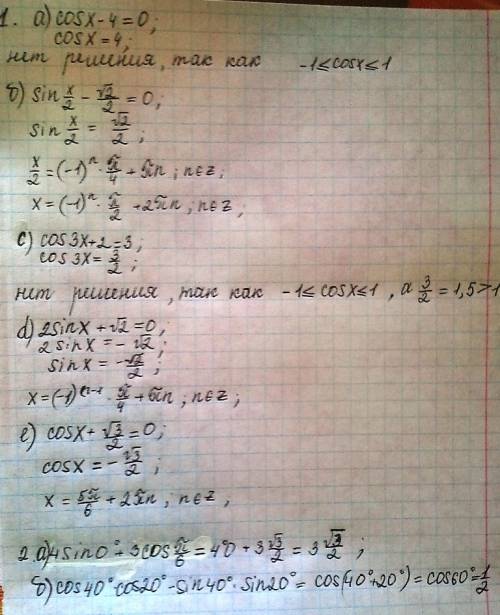 1. а) cosx - 4 = 0;
cosx = 4;
нет решения, так как -1≤cosx≤1
б) sin x/2 - √2/2 = 0;
sin x/2 = √2/2;
x/2 = (-1)ⁿ · π/4 + πn; n∈z;
x = (-1)ⁿ · π/2 + 2πn; n∈z;
c) cos3x+2=3;
cos3x = 3/2;
нет решения, так как -1≤cosx≤1, а 3/2 = 1,5>1
d) 2sinx + √2 = 0;
2sinx = -√2;
sinx = -√2/2;
x = (-1)ⁿ⁻¹ · π/4 + πn; n∈z;
e) cosx + √3/2 = 0;
cosx = -√3/2;
x = 5π/6 + 2πn, n∈z,
2. а) 4sin0° + 3cos π/6 = 4·0 + 3 √3/2 = 3 √3/2;
б) cos40°·cos20° - sin40°·sin20° = cos(40°+20°) = cos60° = 1/2